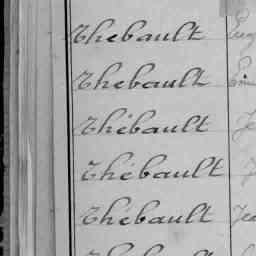 Thebault Eug
Thebault
Thébault Je
Thébault
Thébault Jea